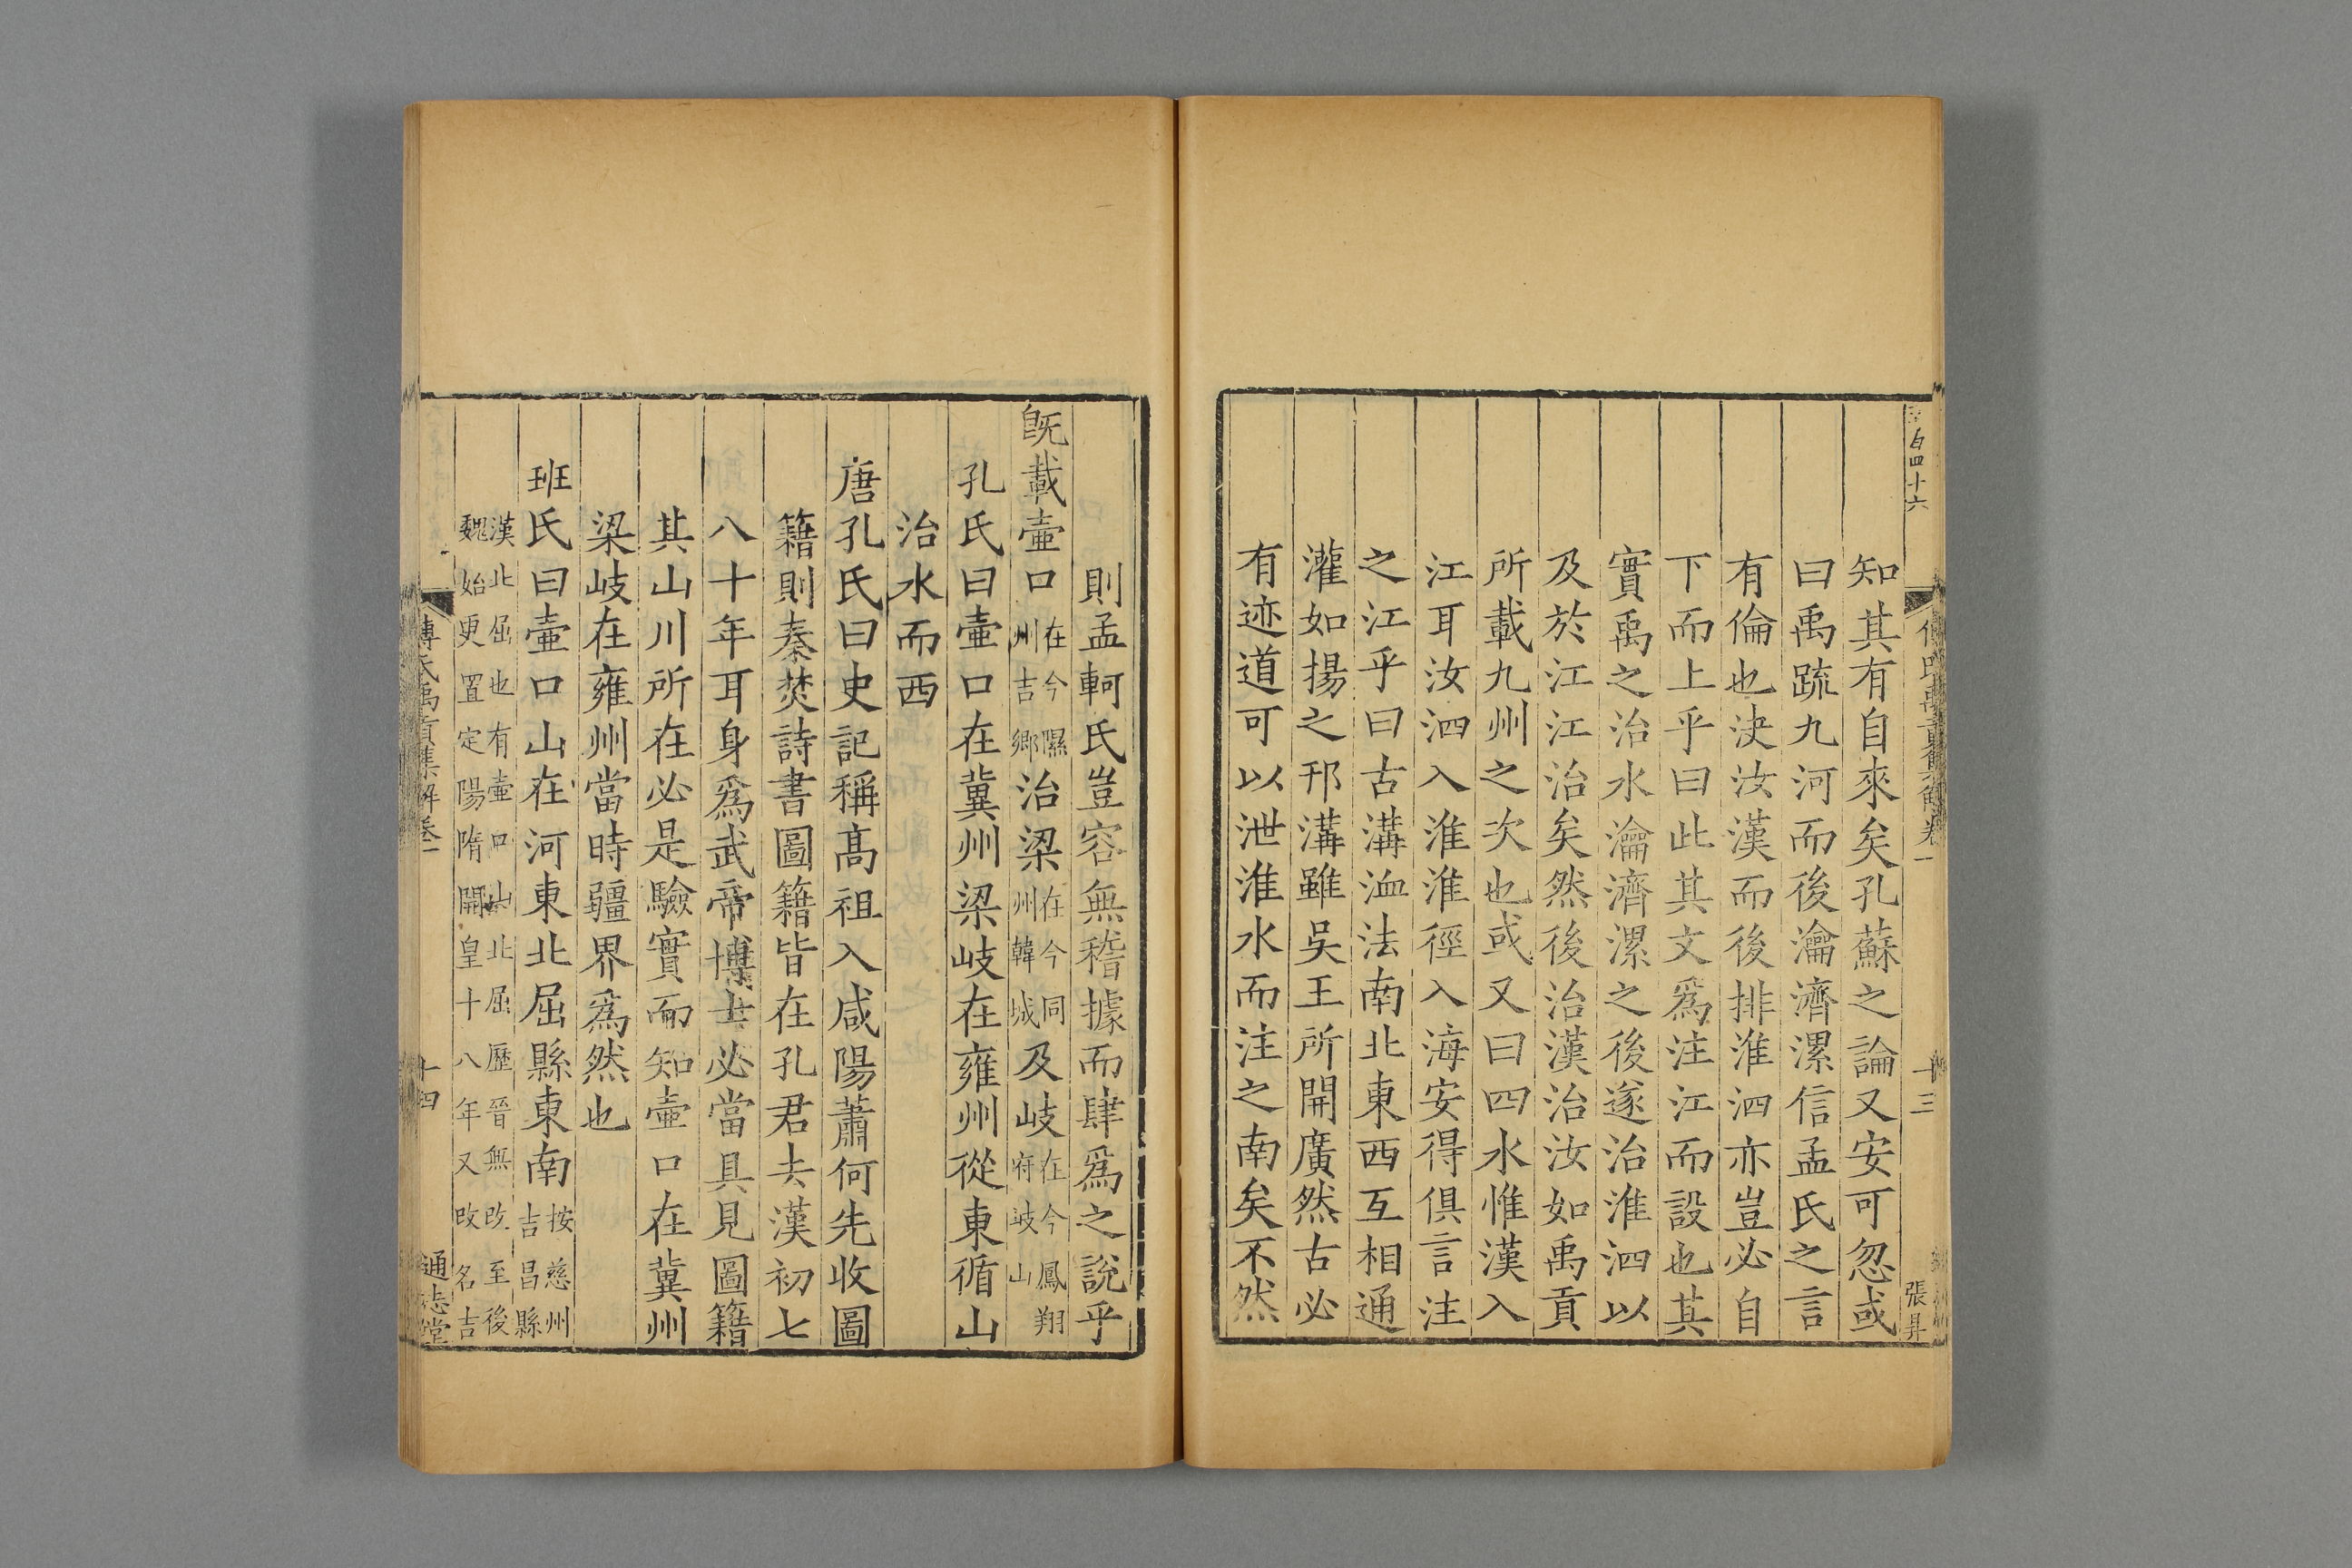 百四十六
傅氏禹貢集解卷一
十三
張昇
知其有自來矣孔蘇之論又安可忽或
曰禹䟽九河而後瀹濟漯信孟氏之言
有倫也決汝漢而後排淮泗亦豈必自
下而上乎曰此其文爲注江而設也其
實禹之治水瀹濟漯之後遂治淮泗以
及於江江治矣然後治漢治汝如禹貢
所載九州之次也或又曰四水惟漢入
江耳汝泗入淮淮徑入海安得俱言注
之江乎曰古溝洫法南北東西互相通
灌如揚之邗溝雖吳王所開廣然古必
有迹道可以泄淮水而注之南矣不然
則孟軻氏豈容無稽據而肆爲之說乎
旣載壷口在今隰州吉鄉治梁在今同州韓城及岐在今鳳翔府岐山
孔氏曰壷口在冀州梁岐在雍州從東循山
治水而西
唐孔氏曰史記稱髙祖入咸陽蕭何先收圖
籍則秦焚詩書圖籍皆在孔君去漢初七
八十年耳身爲武帝博士必當具見圖籍
其山川所在必是驗實而知壷口在冀州
梁岐在雍州當時疆界爲然也
班氏曰壷口山在河東北屈縣東南按慈州吉昌縣
漢北屈也有壷口山北屈歷晉無改至後
魏始更置定陽隋開皇十八年又改名吉
傅氏禹貢集解卷一
十四
通志堂